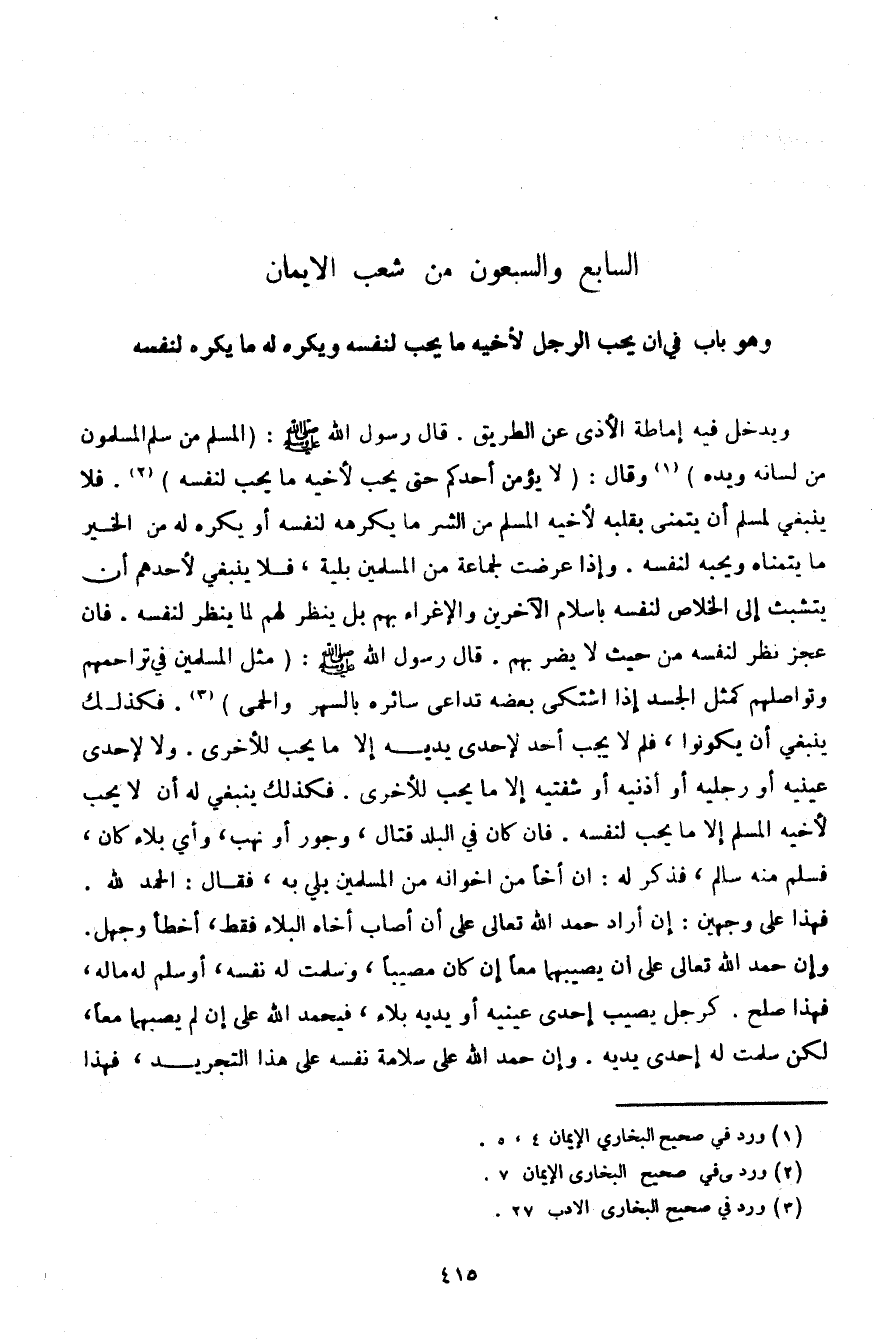 السابع والسبعون من شعب الايمان
وهو باب في ان يحب الرجل لأخيه ما يحب لنفسه ويكره له ما يكره لنفسه
ويدخل فيه إماطة الأذى عن الطريق . قال رسول الله ﷺ : (المسلم من سلم المسلمون
من لسانه ويده ) (١) وقال : ( لا يؤمن أحدكم حتى يحب لأخيه ما يحب لنفسه ) (٢) . فلا
ينبغي لمسلم أن يتمنى بقلبه لأخيه المسلم من الشر ما يكرهه لنفسه أو يكره له من الخير
ما يتمناه ويحبه لنفسه . وإذا عرضت لجماعة من المسلمين بلية ، فلا ينبغي لأحدهم أن
يتشبث إلى الخلاص لنفسه باسلام الآخرين والإغراء بهم بل ينظر لهم لما ينظر لنفسه . فان
عجز نظر لنفسه من حيث لا يضر بهم . قال رسول الله ﷺ : ( مثل المسلمين في تراحمهم
وتواصلهم كمثل الجسد إذا اشتكى بعضه تداعى سائره بالسهر والحمى ) (٣) . فكذلك
ينبغي أن يكونوا ، فلم لا يجب أحد لإحدى يديه إلا ما يحب للأخرى . ولا لإحدى
عينيه أو رجليه أو أذنيه أو شفتيه إلا ما يحب للأخرى . فكذلك ينبغي له أن لا يحب
لأخيه المسلم إلا ما يحب لنفسه . فان كان في البلد قتال ، وجور أو نهب، وأي بلاء كان ،
فسلم منه سالم ، فذكر له : ان أخاً من اخوانه من المسلمين بلي به ، فقال : الحمد لله .
فهذا على وجهين : إن أراد حمد الله تعالى على أن أصاب أخاه البلاء فقط، أخطأ وجهل.
وإن حمد الله تعالى على ان يصيبهما معاً إن كان مصيباً ، وسلمت له نفسه، أو سلم له ماله،
فهذا صلح . كرجل يصيب إحدى عينيه أو يديه بلاء ، فيحمد الله على إن لم يصبهما معاً،
لكن سلمت له إحدى يديه . وإن حمد الله على سلامة نفسه على هذا التجريد ، فهذا
(١) ورد في صحيح البخاري الإيمان ٤ ، ٥ .
(٢) ورد في صحيح البخارى الإيمان ٧ .
(٣) ورد في صحيح البخارى الادب ٢٧ .
٤١٥